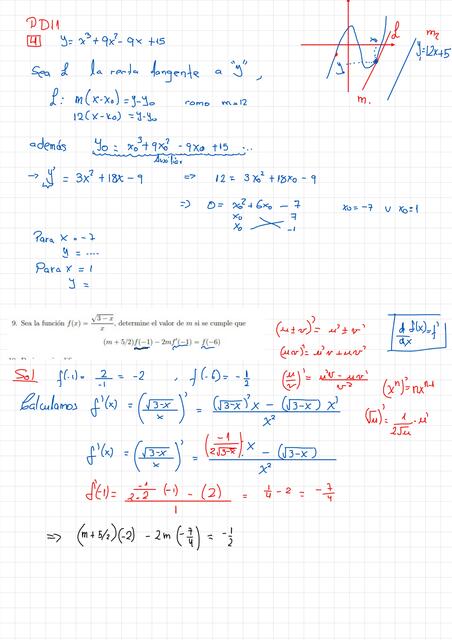 P.D11
4 y = x³+9x²-9x+15
Sea L la recta tangente a "y",
L: m(x-x₀) = y-y₀ como m=12
12(x-x₀) = y-y₀
además y₀ = x₀³+9x₀²-9x₀+15 ...
→ y' = 3x²+18x-9 ⇒ 12 = 3x₀²+18x₀-9
⇒ 0 = x₀²+6x₀-7 x₀=-7 ∨ x₀=1
x₀ 7
x₀ -1
Para x=-7
y = ....
Para x = 1
y =
x₀
L
m₂
y=12x+5
y
m.
9. Sea la función f(x) = √(3-x)/x, determine el valor de m si se cumple que
(m+5/2)f(-1) - 2mf'(-1) = f(-6)
(u±v)' = u'±v'
(uv)' = u'v+uv'
(u/v)' = (u'v-uv')/v²
d/dx f(x)=f'
(xⁿ)' = nxⁿ⁻¹
(√u)' = 1/(2√u)·u'
Sol f(-1) = 2/-1 = -2 , f(-6) = -1/2
Calculamos f'(x) = (√(3-x)/x)' = ((√(3-x))'x - (√(3-x))x')/x²
f'(x) = (√(3-x)/x)' = ((-1/(2√(3-x)))x - (√(3-x)))/x²
f'(-1) = (-1/(2·2)(-1) - (2))/1 = 1/4 - 2 = -7/4
⇒ (m+5/2)(-2) - 2m(-7/4) = -1/2